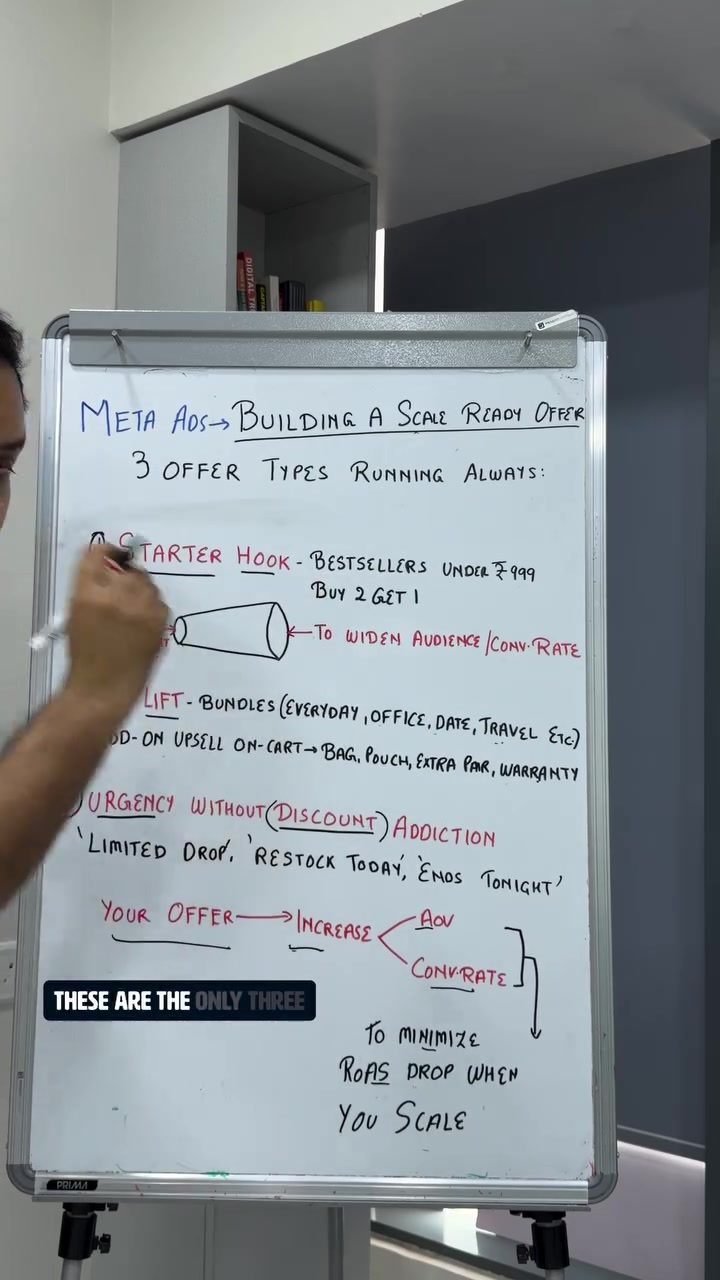 DIGITAL
META ADS→BUILDING A SCALE READY OFFER
3 OFFER TYPES RUNNING ALWAYS:
STARTER HOOK - BESTSELLERS UNDER ₹999
BUY 2 GET 1
←TO WIDEN AUDIENCE/CONV.RATE
LIFT - BUNDLES (EVERYDAY, OFFICE, DATE, TRAVEL ETC.)
UPSELL ON-CART→BAG, POUCH, EXTRA PAIR, WARRANTY
URGENCY WITHOUT (DISCOUNT) ADDICTION
'LIMITED DROP', 'RESTOCK TODAY', 'ENDS TONIGHT'
YOUR OFFER→INCREASE
AOV
CONV.RATE
THESE ARE THE ONLY THREE
TO MINIMIZE
ROAS DROP WHEN
YOU SCALE
PRIMA